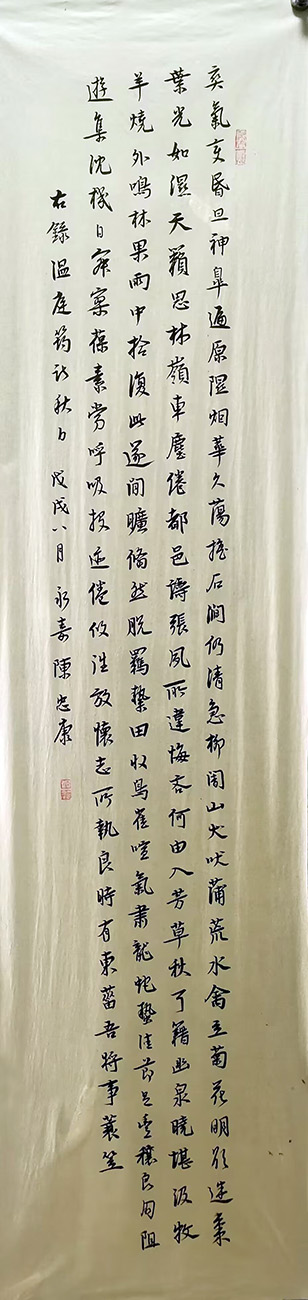 爽氣变昏旦神皋遍原隰烟華久蕩搖石澗仍清急柳闇山犬吠蒲荒水禽立菊花明欲迷棗
葉光如濕天籟思林嶺車塵倦都邑譸張夙所違悔吝何由入芳草秋可藉幽泉曉堪汲牧
羊燒外鳴林果雨中拾復此遂閒曠翛然脫羈縶田收鳥雀喧氣肅龍蛇蟄佳節足豐穰良朋阻
遊集沈機日寂寥葆素常呼吸投迹倦攸往放懷志所執良時有東菑吾將事蓑笠
右錄溫庭筠詩秋日 戊戌八月 永壽陳忠康